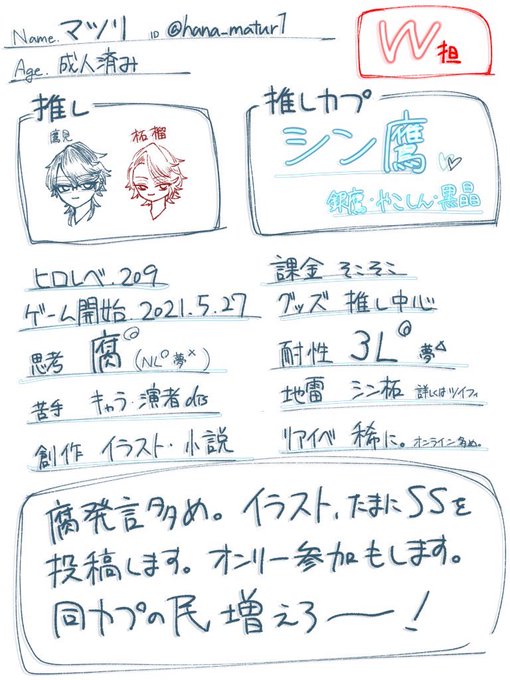 Name. マツリ ID @hana_matur7
W担
Age. 成人済み
推し
鷹見 柘榴
推しカプ
シン鷹
銀虎・やこしん・黒晶
ヒロレベ. 209
課金 そこそこ
ゲーム開始. 2021.5.27
グッズ 推し中心
思考 腐◎ (NL○ 夢×)
耐性 3L◎ 夢△
苦手 キャラ・演者dis
地雷 シン柘 詳しくはツイフィ
創作 イラスト・小説
リアイベ 稀に。オンライン多め。
腐発言多め。イラスト、たまにSSを
投稿します。オンリー参加もします。
同カプの民増えろ〜!